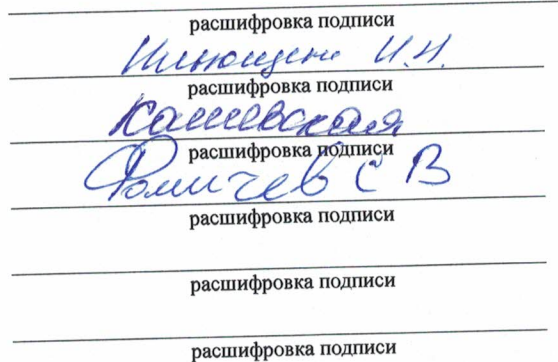 расшифровка подписи
И.Н.
расшифровка подписи
Кашевская
расшифровка подписи
Фомичев С В
расшифровка подписи
расшифровка подписи
расшифровка подписи